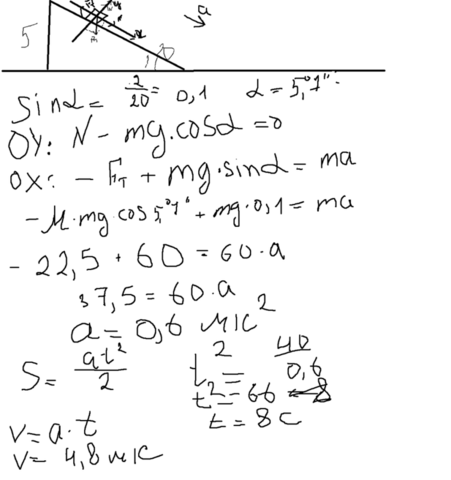 5 a
sinα = 2/20 = 0,1 α = 5,°7":
OY: N - mg.cosα = 0
OX: - Fт + mg·sinα = ma
- μ·mg cos 5,°7" + mg·0,1 = ma
- 22,5 + 60 = 60·a
37,5 = 60.a
a = 0,6 м/с²
S = at²/2 t² = 40/0,6
t² = 66
t = 8 с
v = a·t
v = 4,8 м/с